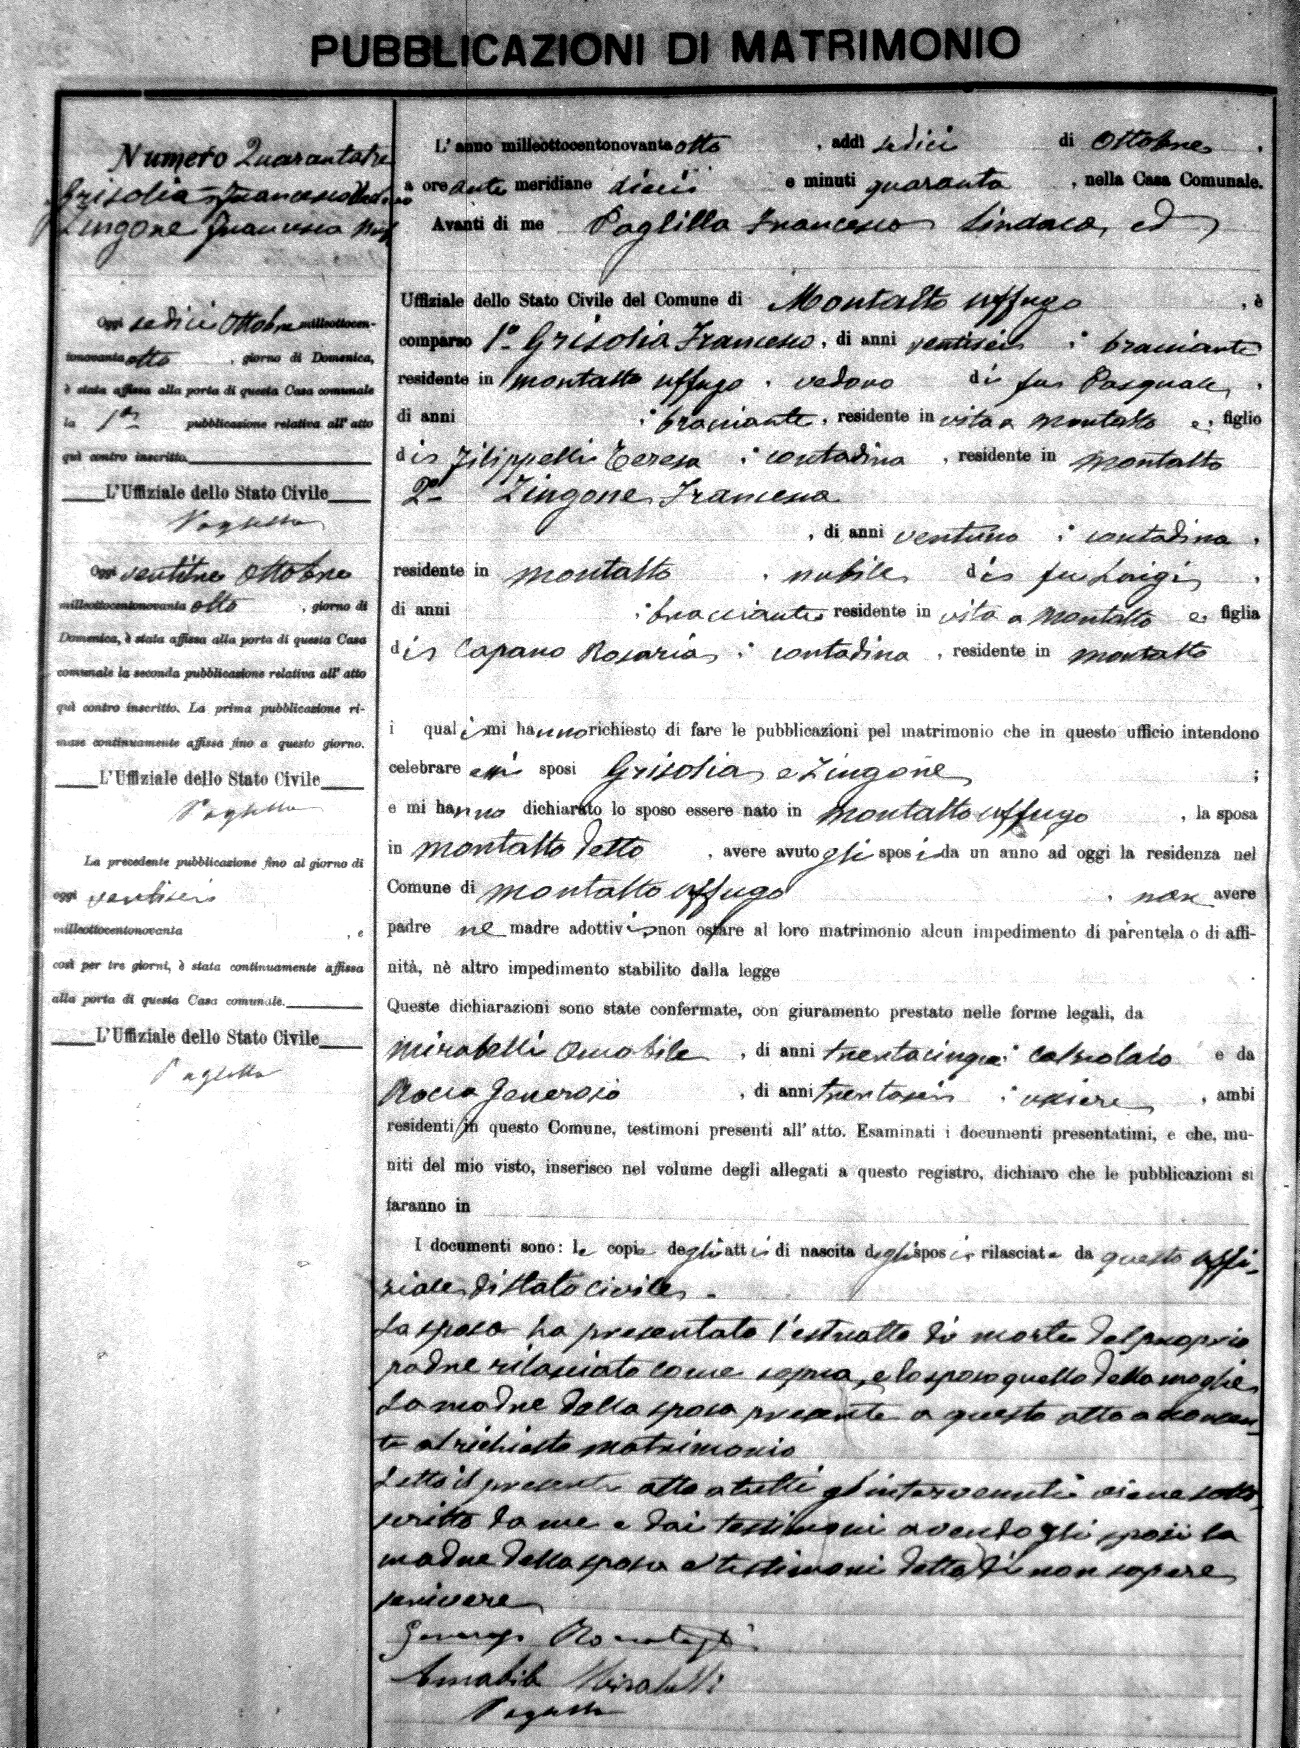 PUBBLICAZIONI DI MATRIMONIO
Numero Quarantatre
Grisolia Francesco
Zingone Francesca
Oggi sedici Ottobre milleottocen-
tonovanta otto , giorno di Domenica,
è stata affissa alla porta di questa Casa comunale
la 1ª pubblicazione relativa all' atto
quì contro inscritto.
L'Uffiziale dello Stato Civile
Oggi ventitre Ottobre
milleottocentonovanta otto , giorno di
Domenica, è stata affissa alla porta di questa Casa
comunale la seconda pubblicazione relativa all' atto
quì contro inscritto. La prima pubblicazione ri-
mase continuamente affissa fino a questo giorno.
L'Uffiziale dello Stato Civile
La precedente pubblicazione fino al giorno di
oggi ventisei
milleottocentonovanta , e
così per tre giorni, è stata continuamente affissa
alla porta di questa Casa comunale.
L'Uffiziale dello Stato Civile
L' anno milleottocentonovanta otto , addì sedici di Ottobre ,
a ore ante meridiane dieci e minuti quaranta , nella Casa Comunale.
Avanti di me Francesco Sindaco, ed
Uffiziale dello Stato Civile del Comune di Montalto uffugo , è
comparso 1º Grisolia Francesco , di anni ventisei , bracciante
residente in montalto uffugo , vedovo di fu Pasquale ,
di anni , bracciante , residente in vita a montalto e , figlio
di Filippelli Teresa , contadina , residente in montalto
2º Zingone Francesca
, di anni ventuno , contadina ,
residente in montalto , nubile di fu Luigi ,
di anni , bracciante residente in vita a montalto e figlia
di Capano Rosaria , contadina , residente in montalto
i quali mi hanno richiesto di fare le pubblicazioni pel matrimonio che in questo ufficio intendono
celebrare essi sposi Grisolia e Zingone ;
e mi hanno dichiarato lo sposo essere nato in montalto uffugo , la sposa
in montalto detto , avere avuto gli sposi da un anno ad oggi la residenza nel
Comune di montalto uffugo , non avere
padre ne madre adottivi non ostare al loro matrimonio alcun impedimento di parentela o di affi-
nità, nè altro impedimento stabilito dalla legge
Queste dichiarazioni sono state confermate, con giuramento prestato nelle forme legali, da
Mirabelli Amabile , di anni trentacinque , calzolaio e da
Rocca Generoso , di anni trentasei , usciere , ambi
residenti in questo Comune, testimoni presenti all' atto. Esaminati i documenti presentatimi, e che, mu-
niti del mio visto, inserisco nel volume degli allegati a questo registro, dichiaro che le pubblicazioni si
faranno in
I documenti sono: le copie degli atti di nascita degli sposi rilasciate da questo uffi-
ziale di stato civile.
La sposa ha presentato l'estratto di morte del proprio
padre rilasciato come sopra, e lo sposo quello della moglie
La madre della sposa presente a questo atto acconsen-
te al richiesto matrimonio
Letto il presente atto a tutti gl'intervenuti viene sotto-
scritto da me e dai testimoni avendo gli sposi la
madre della sposa e testimoni detto di non sapere
scrivere
Amabile Mirabelli